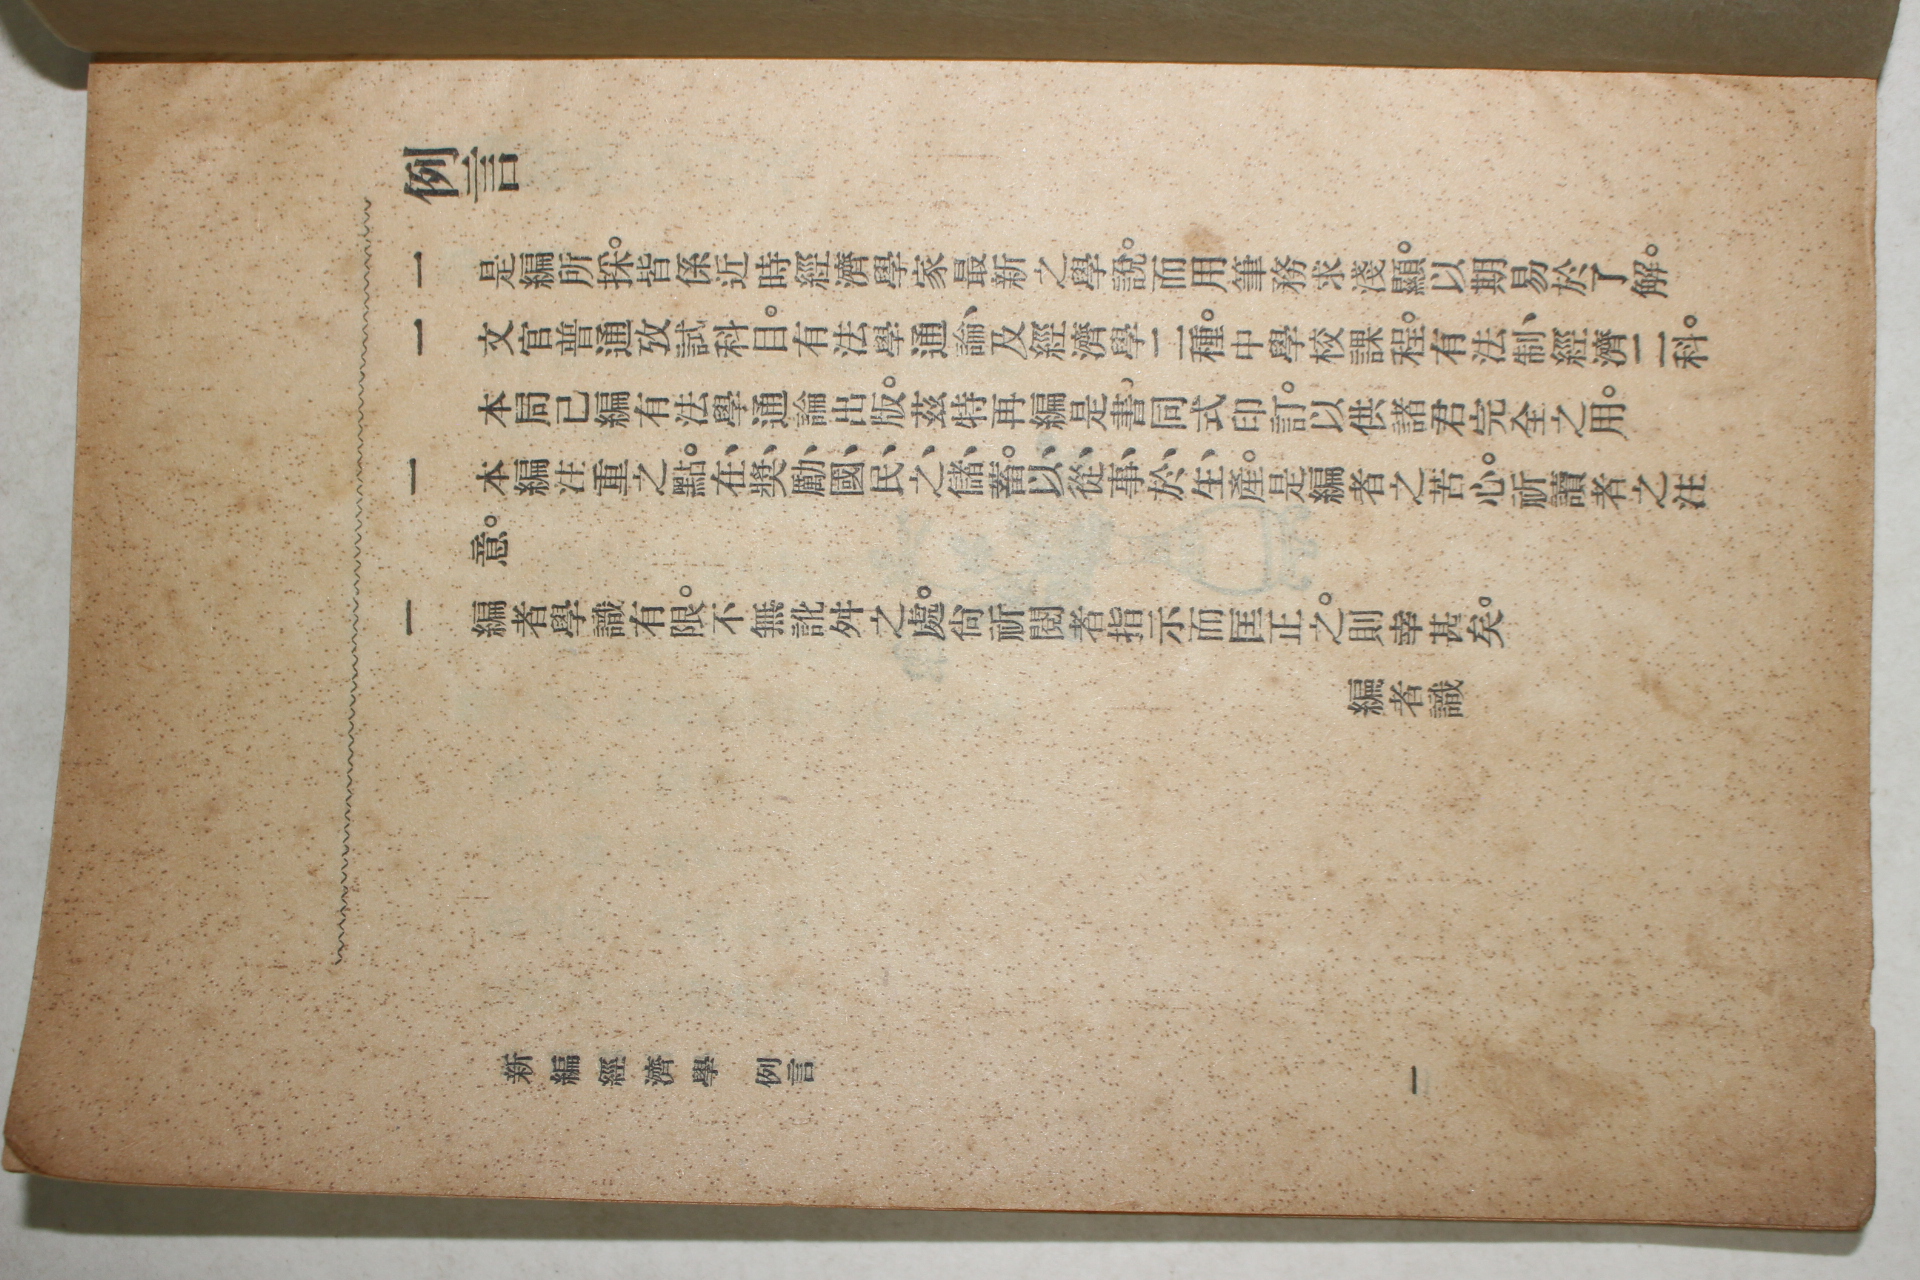 例言
一 是編所採。皆係近時經濟學家最新之學說。而用筆務求淺顯。以期易於了解。
一 文官普通攷試科目。有法學通論、及經濟學二種。中學校課程。有法制、經濟二科。
本局已編有法學通論出版。茲特再編是書、同式印訂。以供諸君完全之用。
一 本編注重之點。在、獎、勵、國、民、之、儲、蓄。以、從、事、於、生、產。是編者之苦心。祈讀者之注
意。
一 編者學識有限。不無訛舛之處。尙祈閱者指示而匡正之。則幸甚矣。
編者識
新編經濟學 例言
一